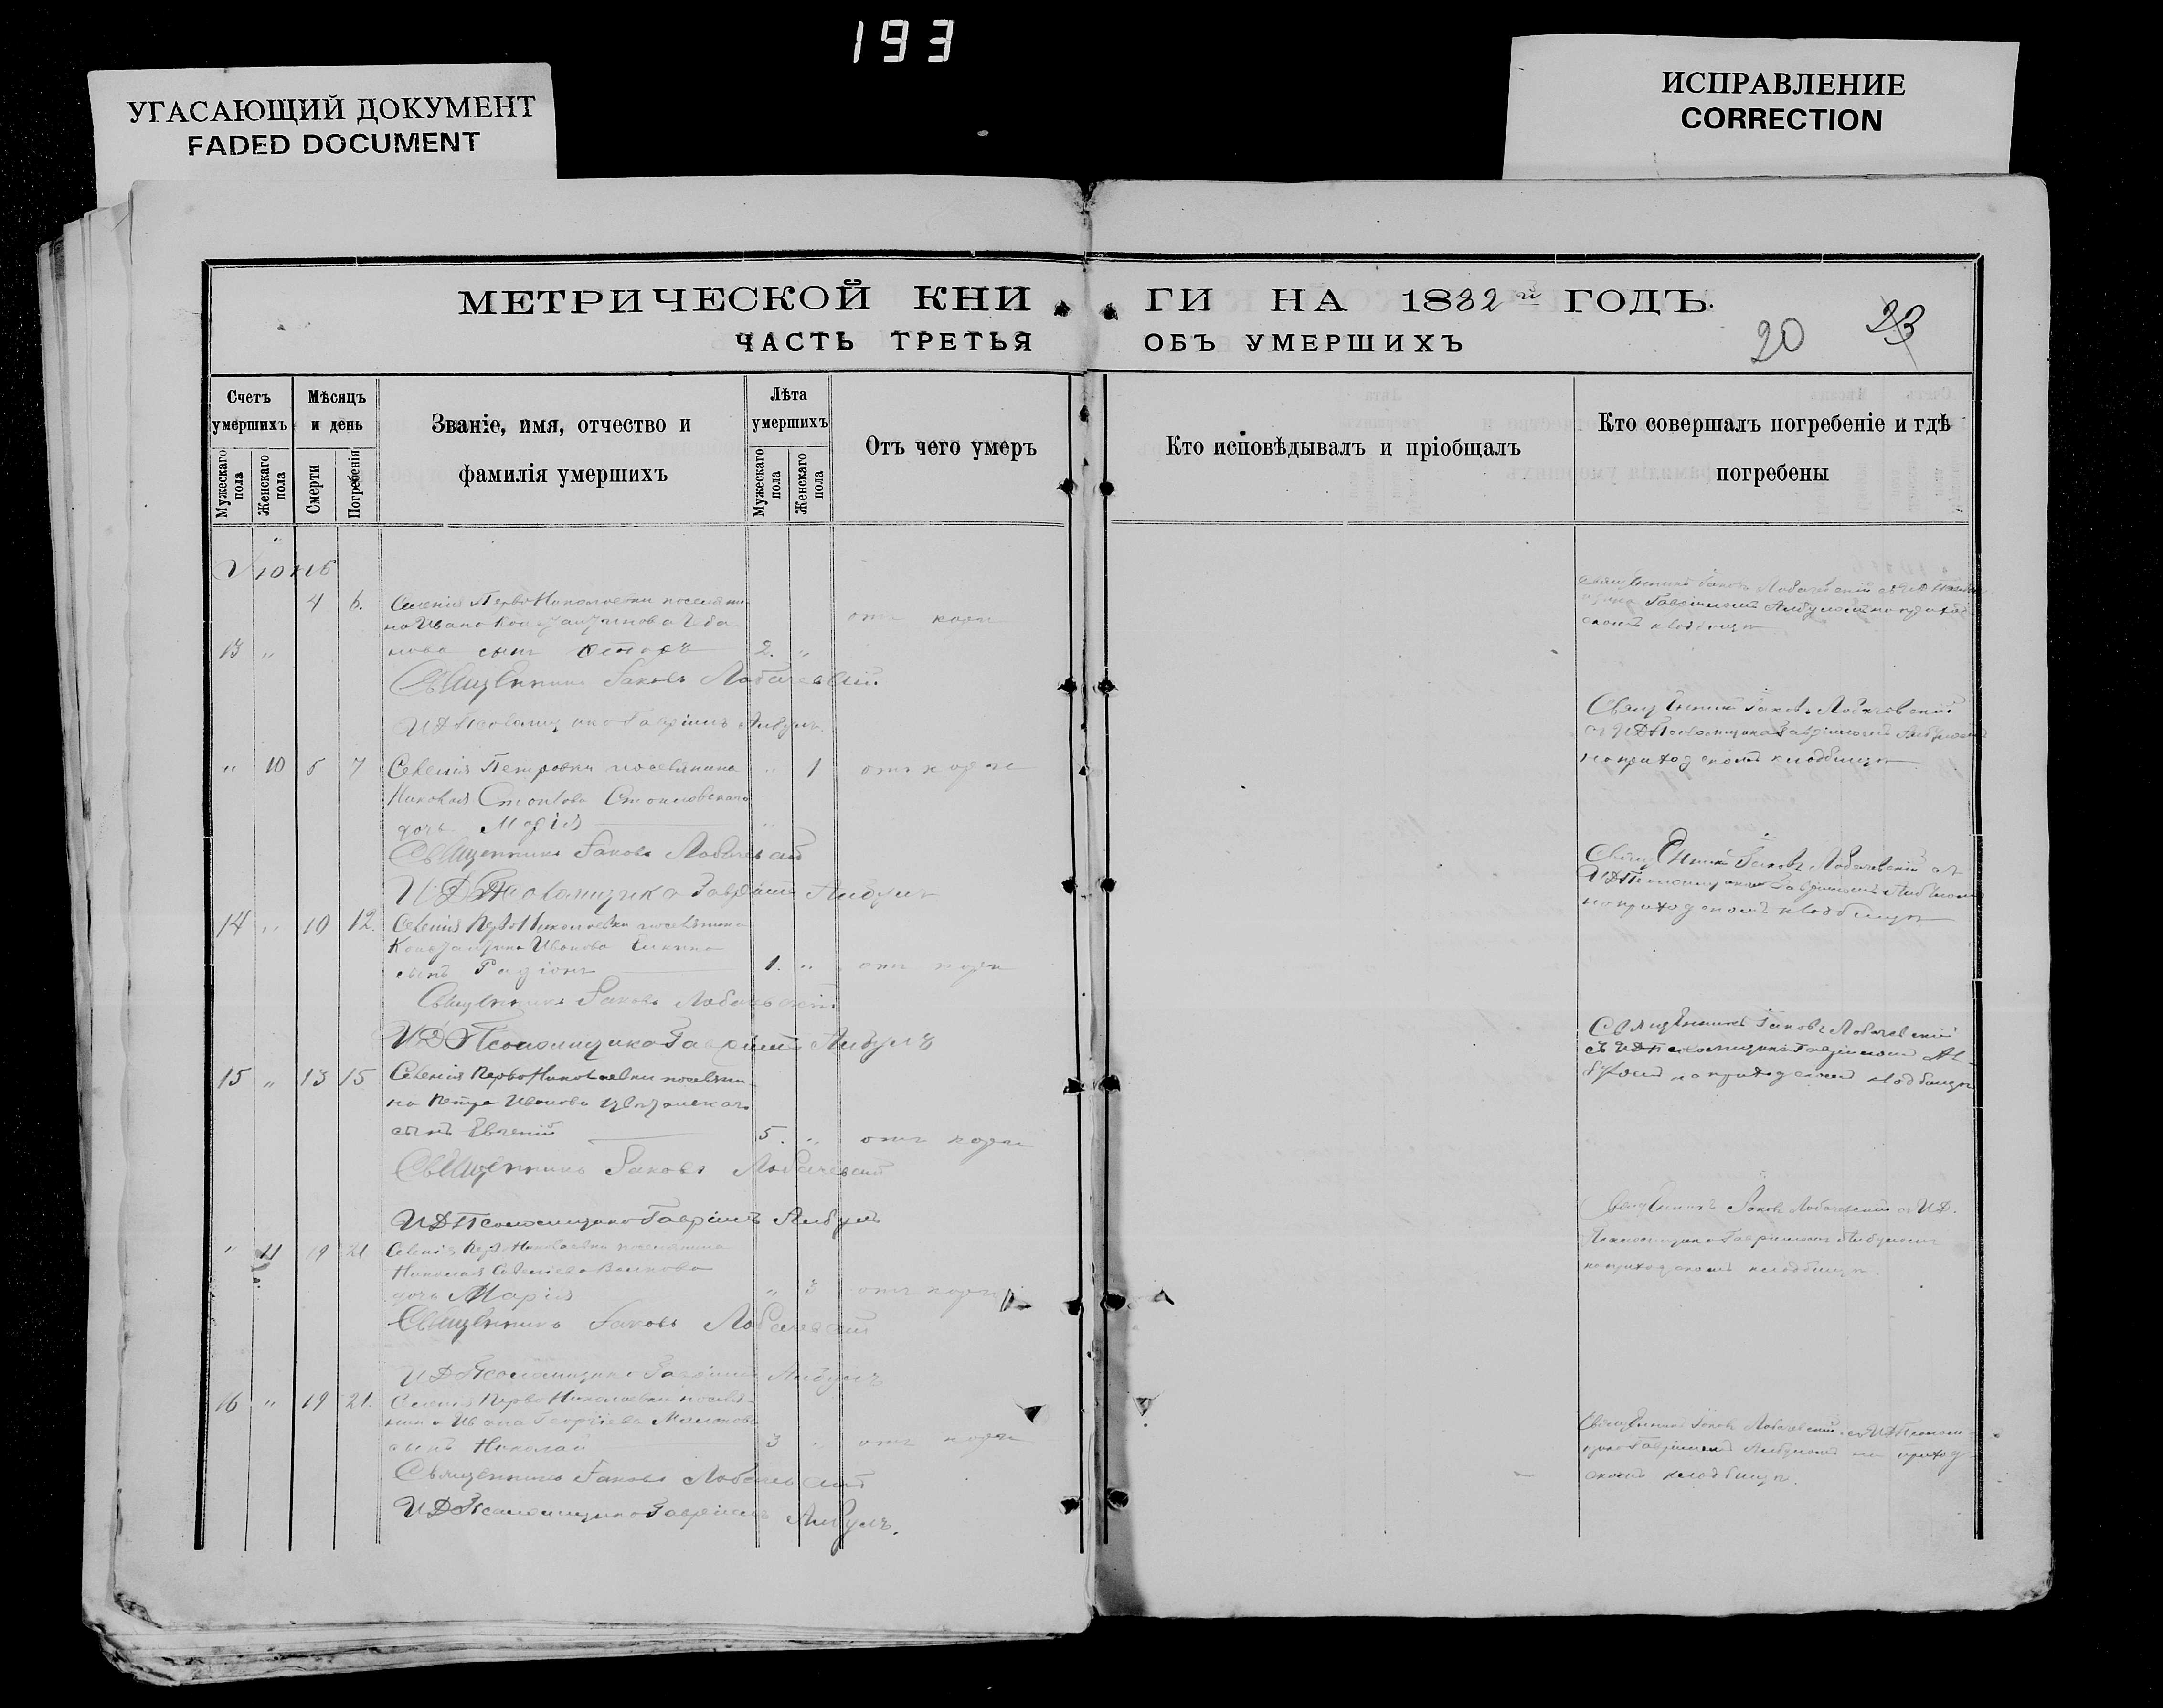 193
УГАСАЮЩИЙ ДОКУМЕНТ
FADED DOCUMENT
ИСПРАВЛЕНИЕ
CORRECTION
МЕТРИЧЕСКОЙ КНИ ГИ НА 1882 й ГОДЪ.
ЧАСТЬ ТРЕТЬЯ ОБЪ УМЕРШИХЪ
20 23
Счетъ умершихъ
Мужескаго пола
Женскаго пола
Мѣсяцъ и день
Смерти
Погребенія
Званіе, имя, отчество и
фамилія умершихъ
Лѣта умершихъ
Мужескаго пола
Женскаго пола
Отъ чего умер
Кто исповѣдывалъ и пріобщалъ
Кто совершалъ погребеніе и гдѣ
погребены
Іюнь
4 6. Селенія Перво Николаевки поселяни-
на Ивана
13 " нова сынъ 2. " отъ кори
Священникъ Іаковъ Лобачевскій
И Д Псаломщика Гавріилъ Албулъ
Священникъ Іаковъ Лобачевскій
съ И Д Псаломщика Гавріиломъ Албуломъ
на приходскомъ кладбищѣ
" 10 5 7 Селенія Петровки поселянина " 1 отъ кори
Николая Стоикова Стоиловскаго
дочь Марія
Священникъ Іаковъ Лобачевскій
И Д Псаломщика Гавріилъ Албулъ
Священникъ Іаковъ Лобачевскій съ
И Д Псаломщика Гавріиломъ Албуломъ
на приходскомъ кладбищѣ
14 " 10 12. Селенія Перво Николаевки поселянина
Константина Иванова
сынъ Радіонъ 1. " отъ кори
Священникъ Іаковъ Лобачевскій
И Д Псаломщика Гавріилъ Албулъ
Священникъ Іаковъ Лобачевскій
съ И Д Псаломщика Гавріиломъ Ал-
буломъ на приходскомъ кладбищѣ
15 " 13 15 Селенія Перво Николаевки поселяни-
на Петра Иванова
сынъ Евгеній 5. " отъ кори
Священникъ Іаковъ Лобачевскій
И Д Псаломщика Гавріилъ Албулъ
Священникъ Іаковъ Лобачевскій съ И Д.
Псаломщика Гавріиломъ Албуломъ
на приходскомъ кладбищѣ
" 11 19 21 Селенія Перво Николаевки поселянина
Николая Савельева Волкова
дочь Марія " 3 отъ кори
Священникъ Іаковъ Лобачевскій
И Д Псаломщика Гавріилъ Албулъ
16 " 19 21. Селенія Перво Николаевки поселя-
нина Ивана Георгіева
сынъ Николай 3 " отъ кори
Священникъ Іаковъ Лобачевскій
И Д Псаломщика Гавріилъ Албулъ.
Священникъ Іаковъ Лобачевскій съ И Д Псалом-
щика Гавріиломъ Албуломъ на приход-
скомъ кладбищѣ.